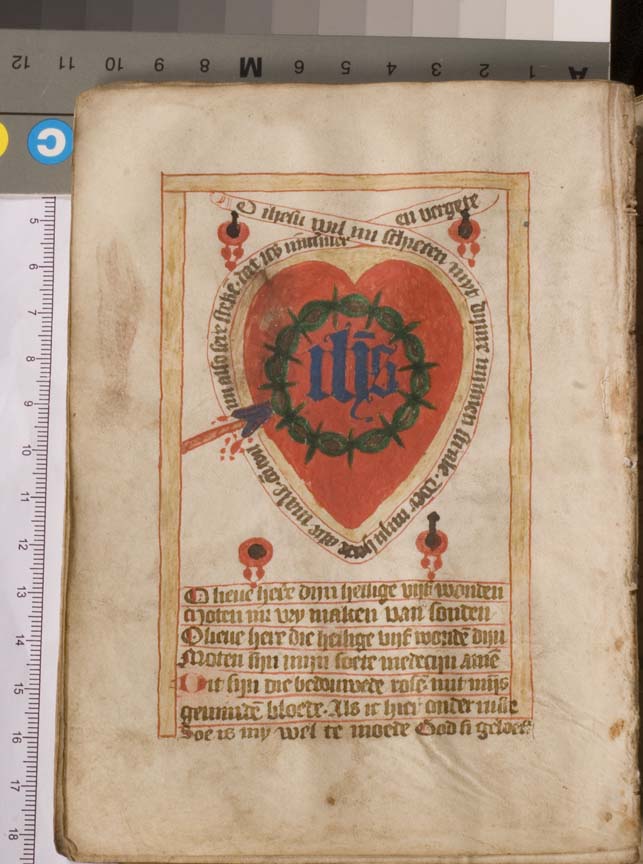 12 11 10 9 8 M 6 5 4 3 2 1 A
C
5
6
7
8
9
10
11
12
13
14
15
16
17
18
O ihesu wil mi schieten myt dijnre minnen strale. Doer mijn herte
also sere steke. dat ics nummer
en vergete
ihs
O lieue here dijn heilige vijf wonden
Moten mi vry maken van sonden
O lieue here die heilige vijf wondē dijn
Moten sijn mijn soete medecijn amē
Dit sijn die bedouwede rosē mit mijs
gemindē bloede. Als ic hier onder
Soe is my wel te moede God si geloeft